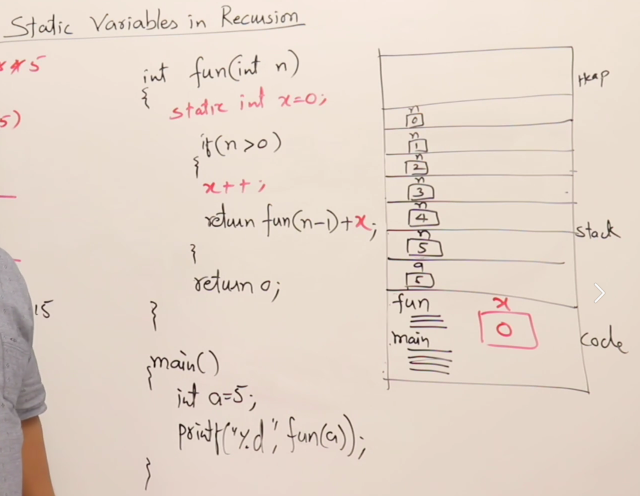 Static Variables in Recursion
5
5)
15
int fun(int n)
{
static int x=0;
if(n>0)
{
x++;
return fun(n-1)+x;
}
return 0;
}
main()
{
int a=5;
printf("%d", fun(a));
}
Heap
n
0
n
1
n
2
n
3
n
4
n
5
a
5
stack
fun
main
x
0
code